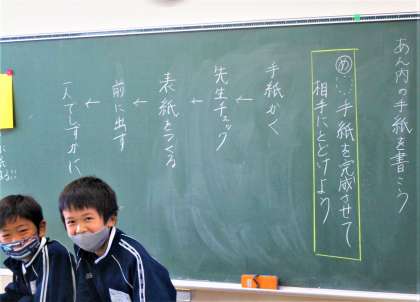 あん内の手紙を書こう
め…手紙を完成させて
相手にとどけよう
手紙かく
↓
先生チェック
↓
表紙をつくる
↓
前に出す
↓
一人でしずかに